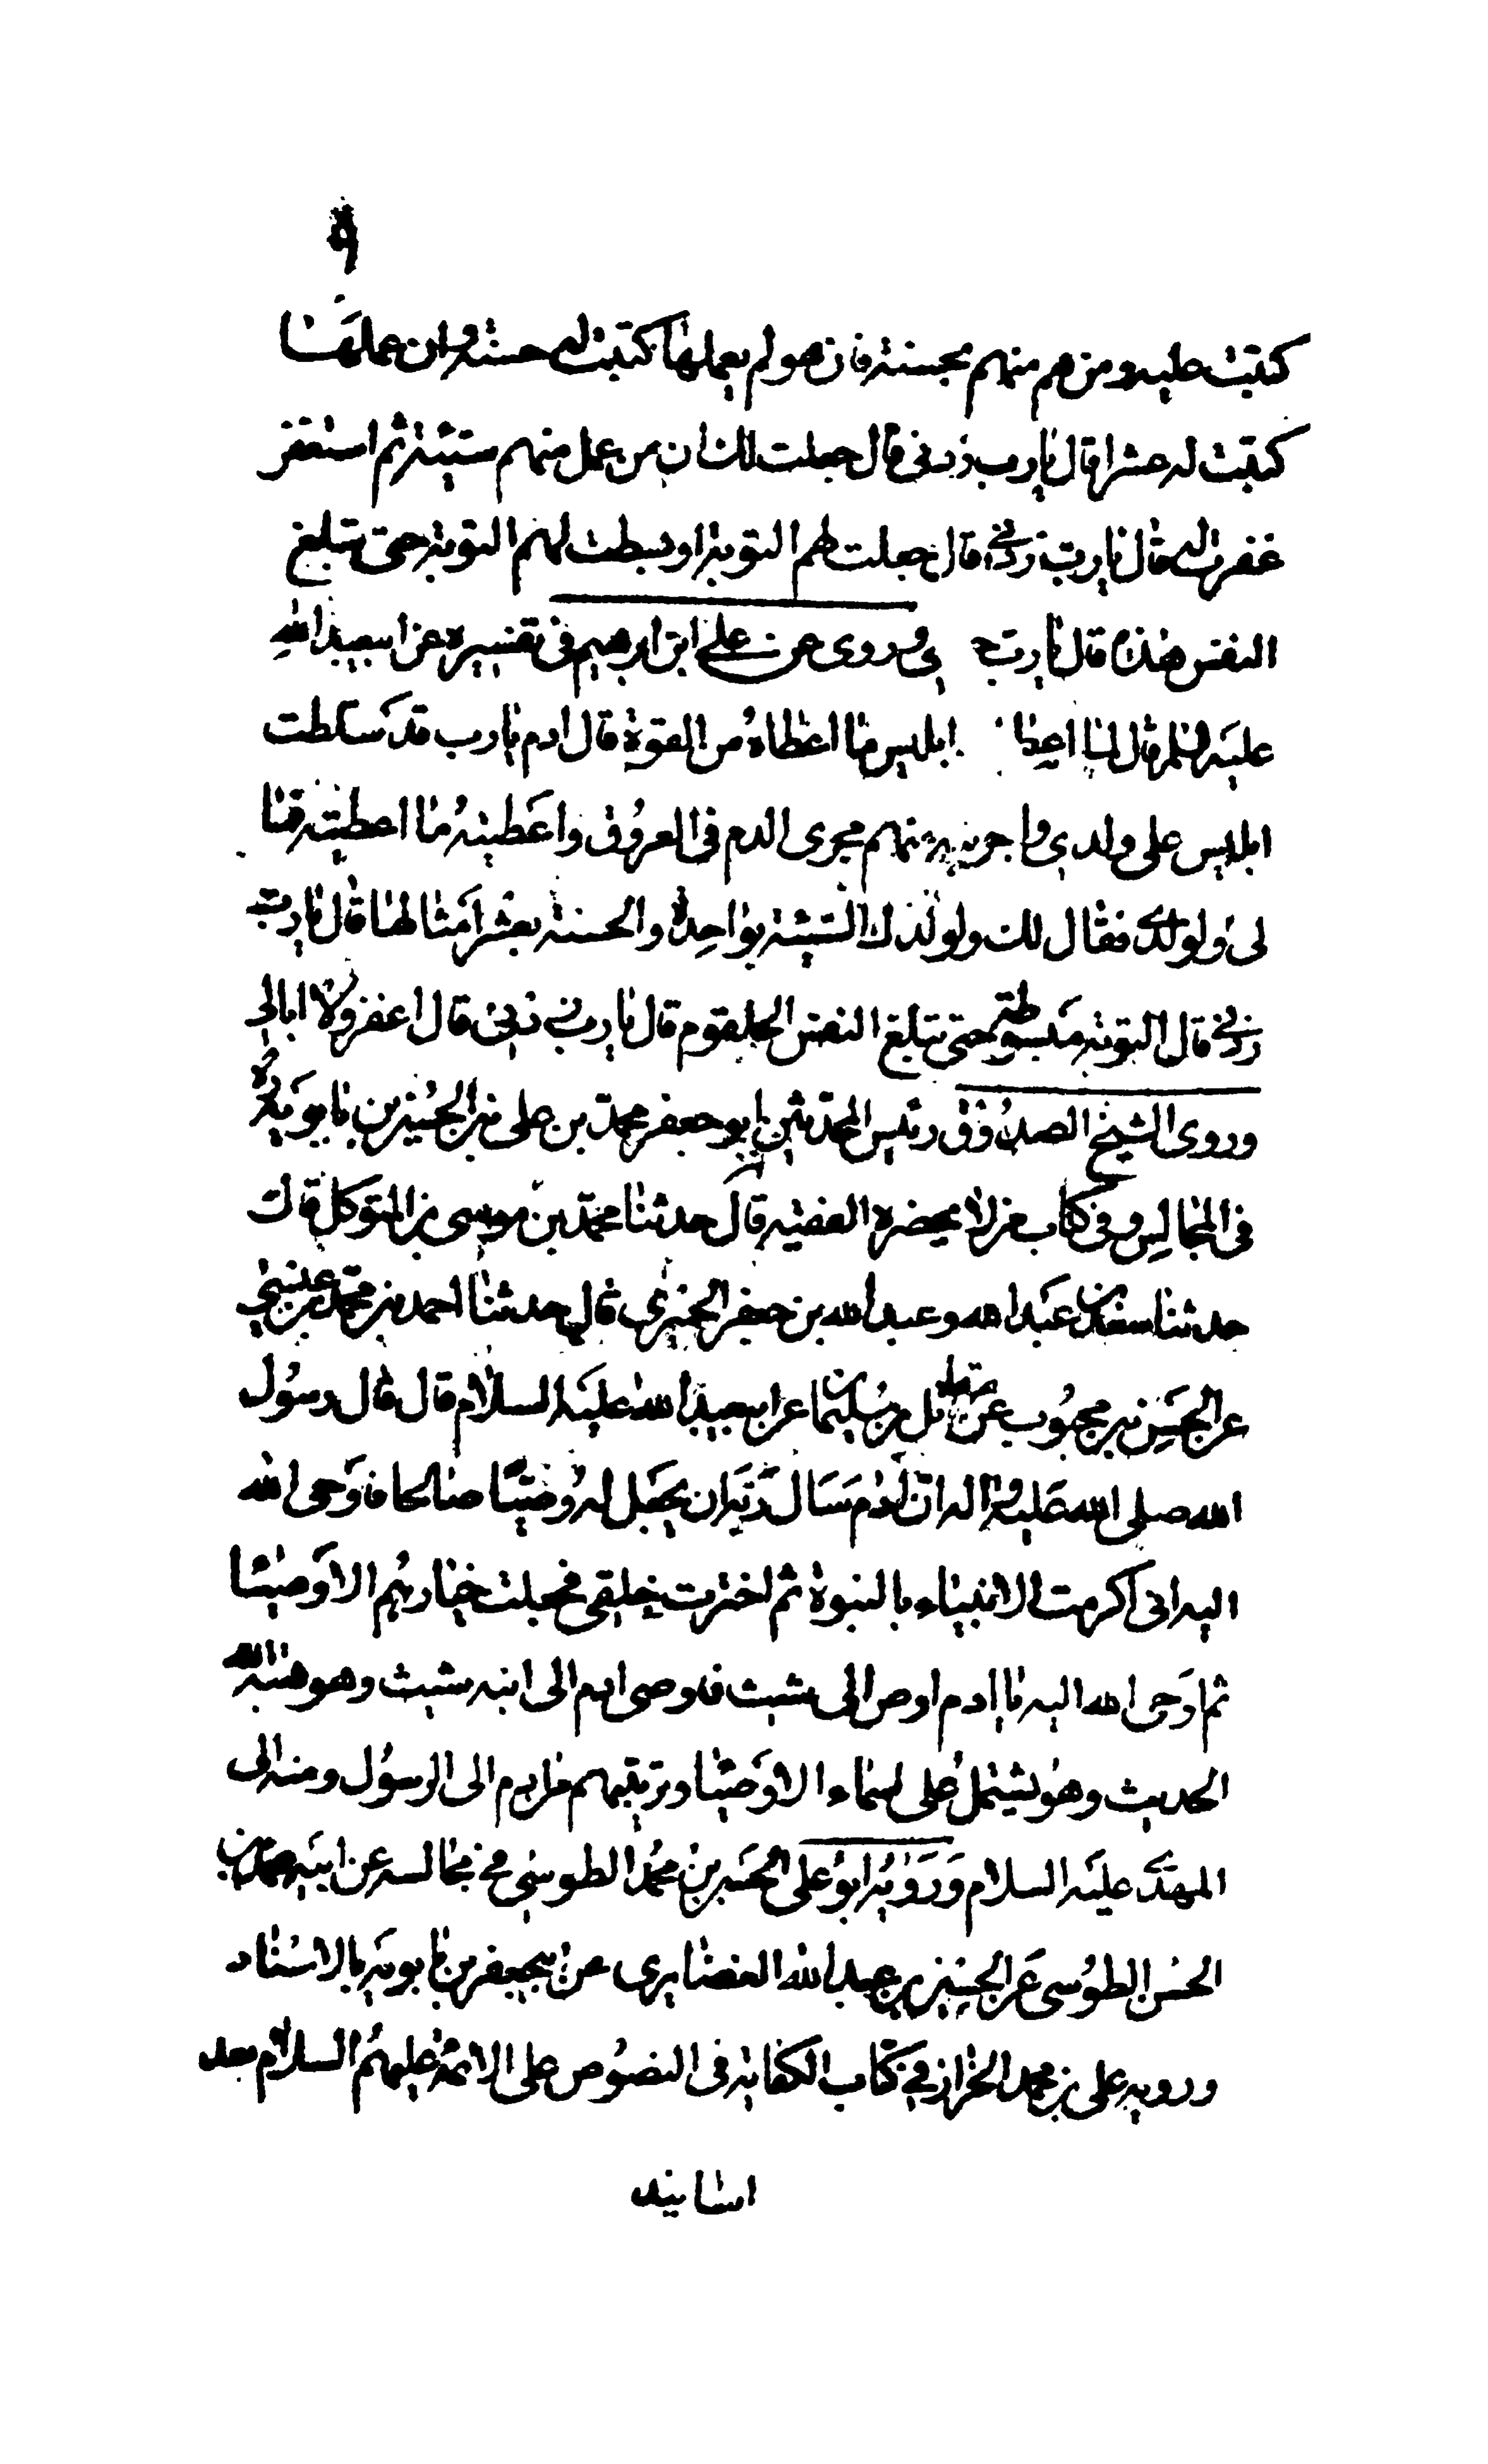 كتبت عليه ومن هم منهم بحسنة فان هو لم يعملها كتبت له حسنة وان عملها
كتبت له عشرا قال يا رب زدنى قال جعلت لك ان من عمل منهم سيئة ثم استغفر
غفرت له قال يا رب زدنى قال جعلت لهم التوبة او بسطت لهم التوبة حتى تبلغ
النفس هذه قال يا رب وروى عن على ابن ابرهيم فى تفسيره عن ابيعبد الله
عليه السلم قال لما اعطا ابليس ما اعطاه من القوة قال ادم يا رب قد سلطت
ابليس على ولدي واجريته منهم مجرى الدم فى العروق واعطيته ما اعطيته فما
لى ولولدى فقال لك ولولدك السيئة بواحدة والحسنة بعشر امثالها قال يا رب
زدنى قال التوبة مبسوطة حتى تبلغ النفس الحلقوم قال يا رب زدنى قال اغفر ولا ابالى
وروى الشيخ الصدوق رئيس المحدثين ابو جعفر محمد بن على بن الحسين بن بابويه ره
فى المجالس وفى كتاب من لا يحضره الفقيه قال حدثنا محمد بن موسى بن المتوكل قال
حدثنا سعد بن عبد الله وعبد الله بن جعفر الحميرى قال حدثنا احمد بن محمد بن عيسى
عن الحسن بن محبوب عن مقاتل بن سليمان عن ابيعبد الله عليه السلام قال قال رسول
الله صلى الله عليه واله ان ادم سال ربه ان يجعل له وصيا صالحا فاوحى الله
اليه انى اكرمت الانبياء بالنبوة ثم اخترت خلقى فجعلت خيارهم الاوصيا
ثم اوحى الله اليه يا ادم اوص الى شيث فاوصى ادم الى ابنه شيث وهو هبة الله
الحديث وهو يشتمل على اسماء الاوصيا وترتيبهم من ادم الى الرسول ومنه الى
المهدى عليه السلام ورواه ابو على الحسن بن محمد الطوسي فى مجالسه عن ابيه محمد بن
الحسن الطوسى عن الحسين بن عبد الله الغضايرى عن ابيجعفر بن بابويه بالاسناد
ورويه على بن محمد الخزاز في كتاب الكفاية فى النصوص على الائمة عليهم السلام بعد
اسانيد